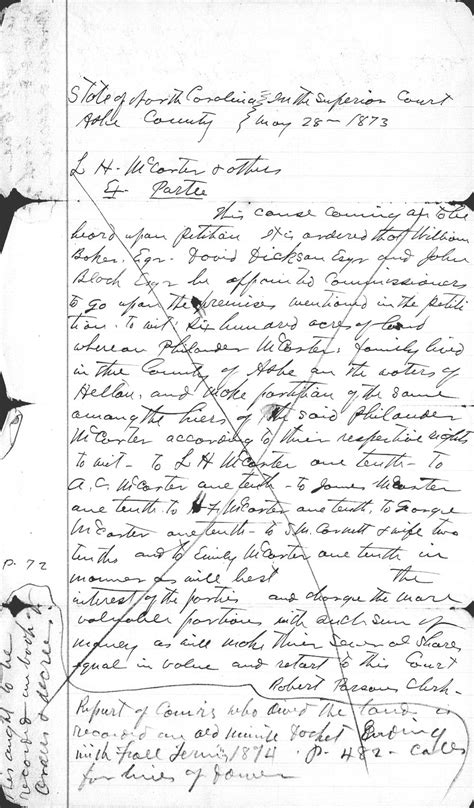 State of North Carolina } In the Superior Court
Ashe County } May 28 - 1873
L H. McCarter & others
Ex Partee
This cause coming up to be
heard upon petition it is ordered that William
Baker, Esqr. David Dickson Esqr and John
Black Esqr be appointed Commissioners
to go upon the premises mentioned in the petit
tion. to wit, Six hundred acres of land
whereon Philander McCarter, family lived
in the County of Ashe on the waters of
Hellon, and make partition of the same
among the hiers of the said Philander
McCarter according to their respective rights
to wit - to L H McCarter one tenth - to
A. C. McCarter one tenth - to James McCarter
one tenth to H F. McCarter one tenth, to George
McCarter one tenth - to S. M. & wife two
tenths and to Emily McCarter one tenth in
manner as will best the
interest of the parties and charge the more
valuable portions with such sum of
money as will make thier several shares
equal in value and report to this Court
Robert Parsons Clerk -
Report of Comirs who divid the land is
recorded on old minute Docket
with Fall Term, 1874 - P - 482 - Calls
for lines of Dower
P. 72
This ought to be
recorded in book of
Orders & decrees